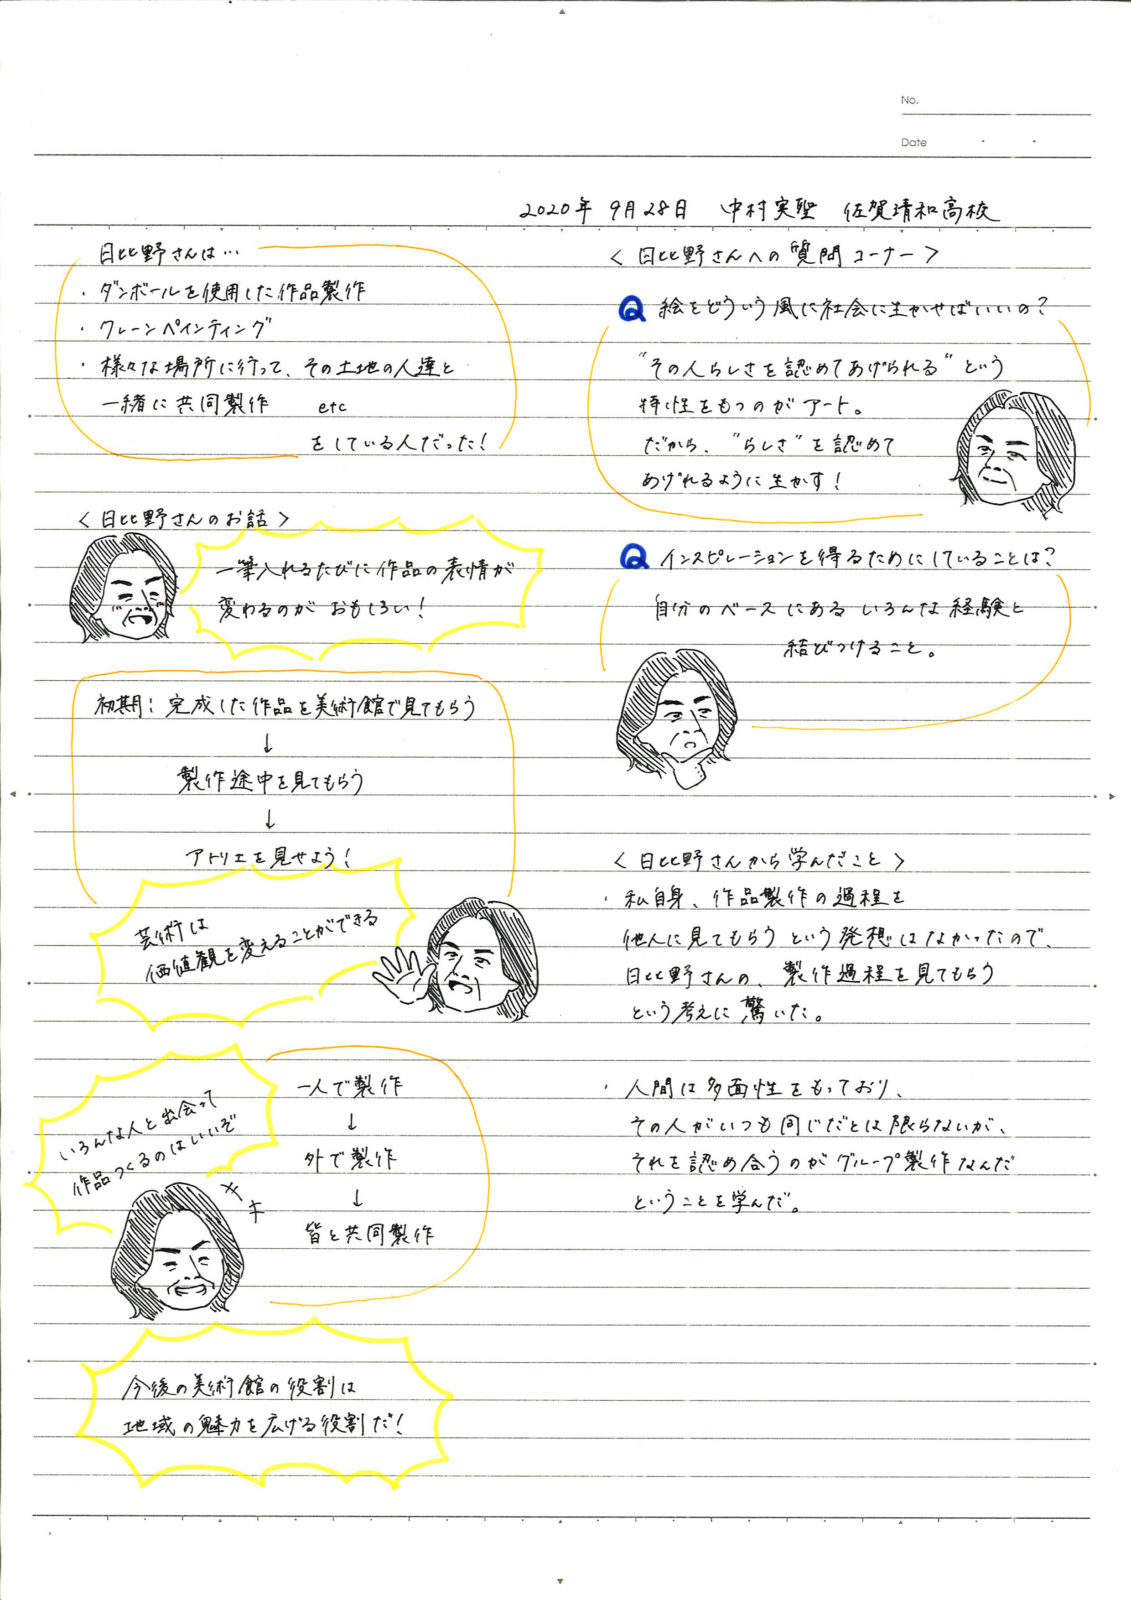 No.
Date
2020年 9月28日 中村実聖 佐賀清和高校
日比野さんは…
・ダンボールを使用した作品製作
・クレーンペインティング
・様々な場所に行って、その土地の人達と
一緒に共同製作 etc
をしている人だった!
〈日比野さんのお話〉
一筆入れるたびに作品の表情が
変わるのがおもしろい!
初期:完成した作品を美術館で見てもらう
↓
製作途中を見てもらう
↓
アトリエを見せよう!
芸術は
価値観を変えることができる
いろんな人と出会って
作品つくるのはいいぞ
一人で製作
↓
外で製作
↓
皆と共同製作
今後の美術館の役割は
地域の魅力を広げる役割だ!
〈日比野さんへの質問コーナー〉
Q 絵をどういう風に社会に生かせばいいの?
"その人らしさを認めてあげられる"という
特性をもつのがアート。
だから、"らしさ"を認めて
あげれるように生かす!
Q インスピレーションを得るためにしていることは?
自分のベースにあるいろんな経験と
結びつけること。
〈日比野さんから学んだこと〉
・私自身、作品製作の過程を
他人に見てもらうという発想はなかったので、
日比野さんの、製作過程を見てもらう
という考えに驚いた。
・人間は多面性をもっており、
その人がいつも同じだとは限らないが、
それを認め合うのがグループ製作なんだ
ということを学んだ。